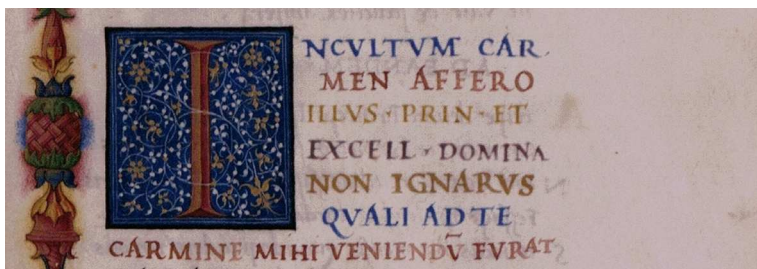 INCVLTVM CAR
MEN AFFERO
ILLVS · PRIN · ET
EXCELL · DOMINA
NON IGNARVS
QVALI AD TE
CARMINE MIHI VENIENDV̄ FVRAT